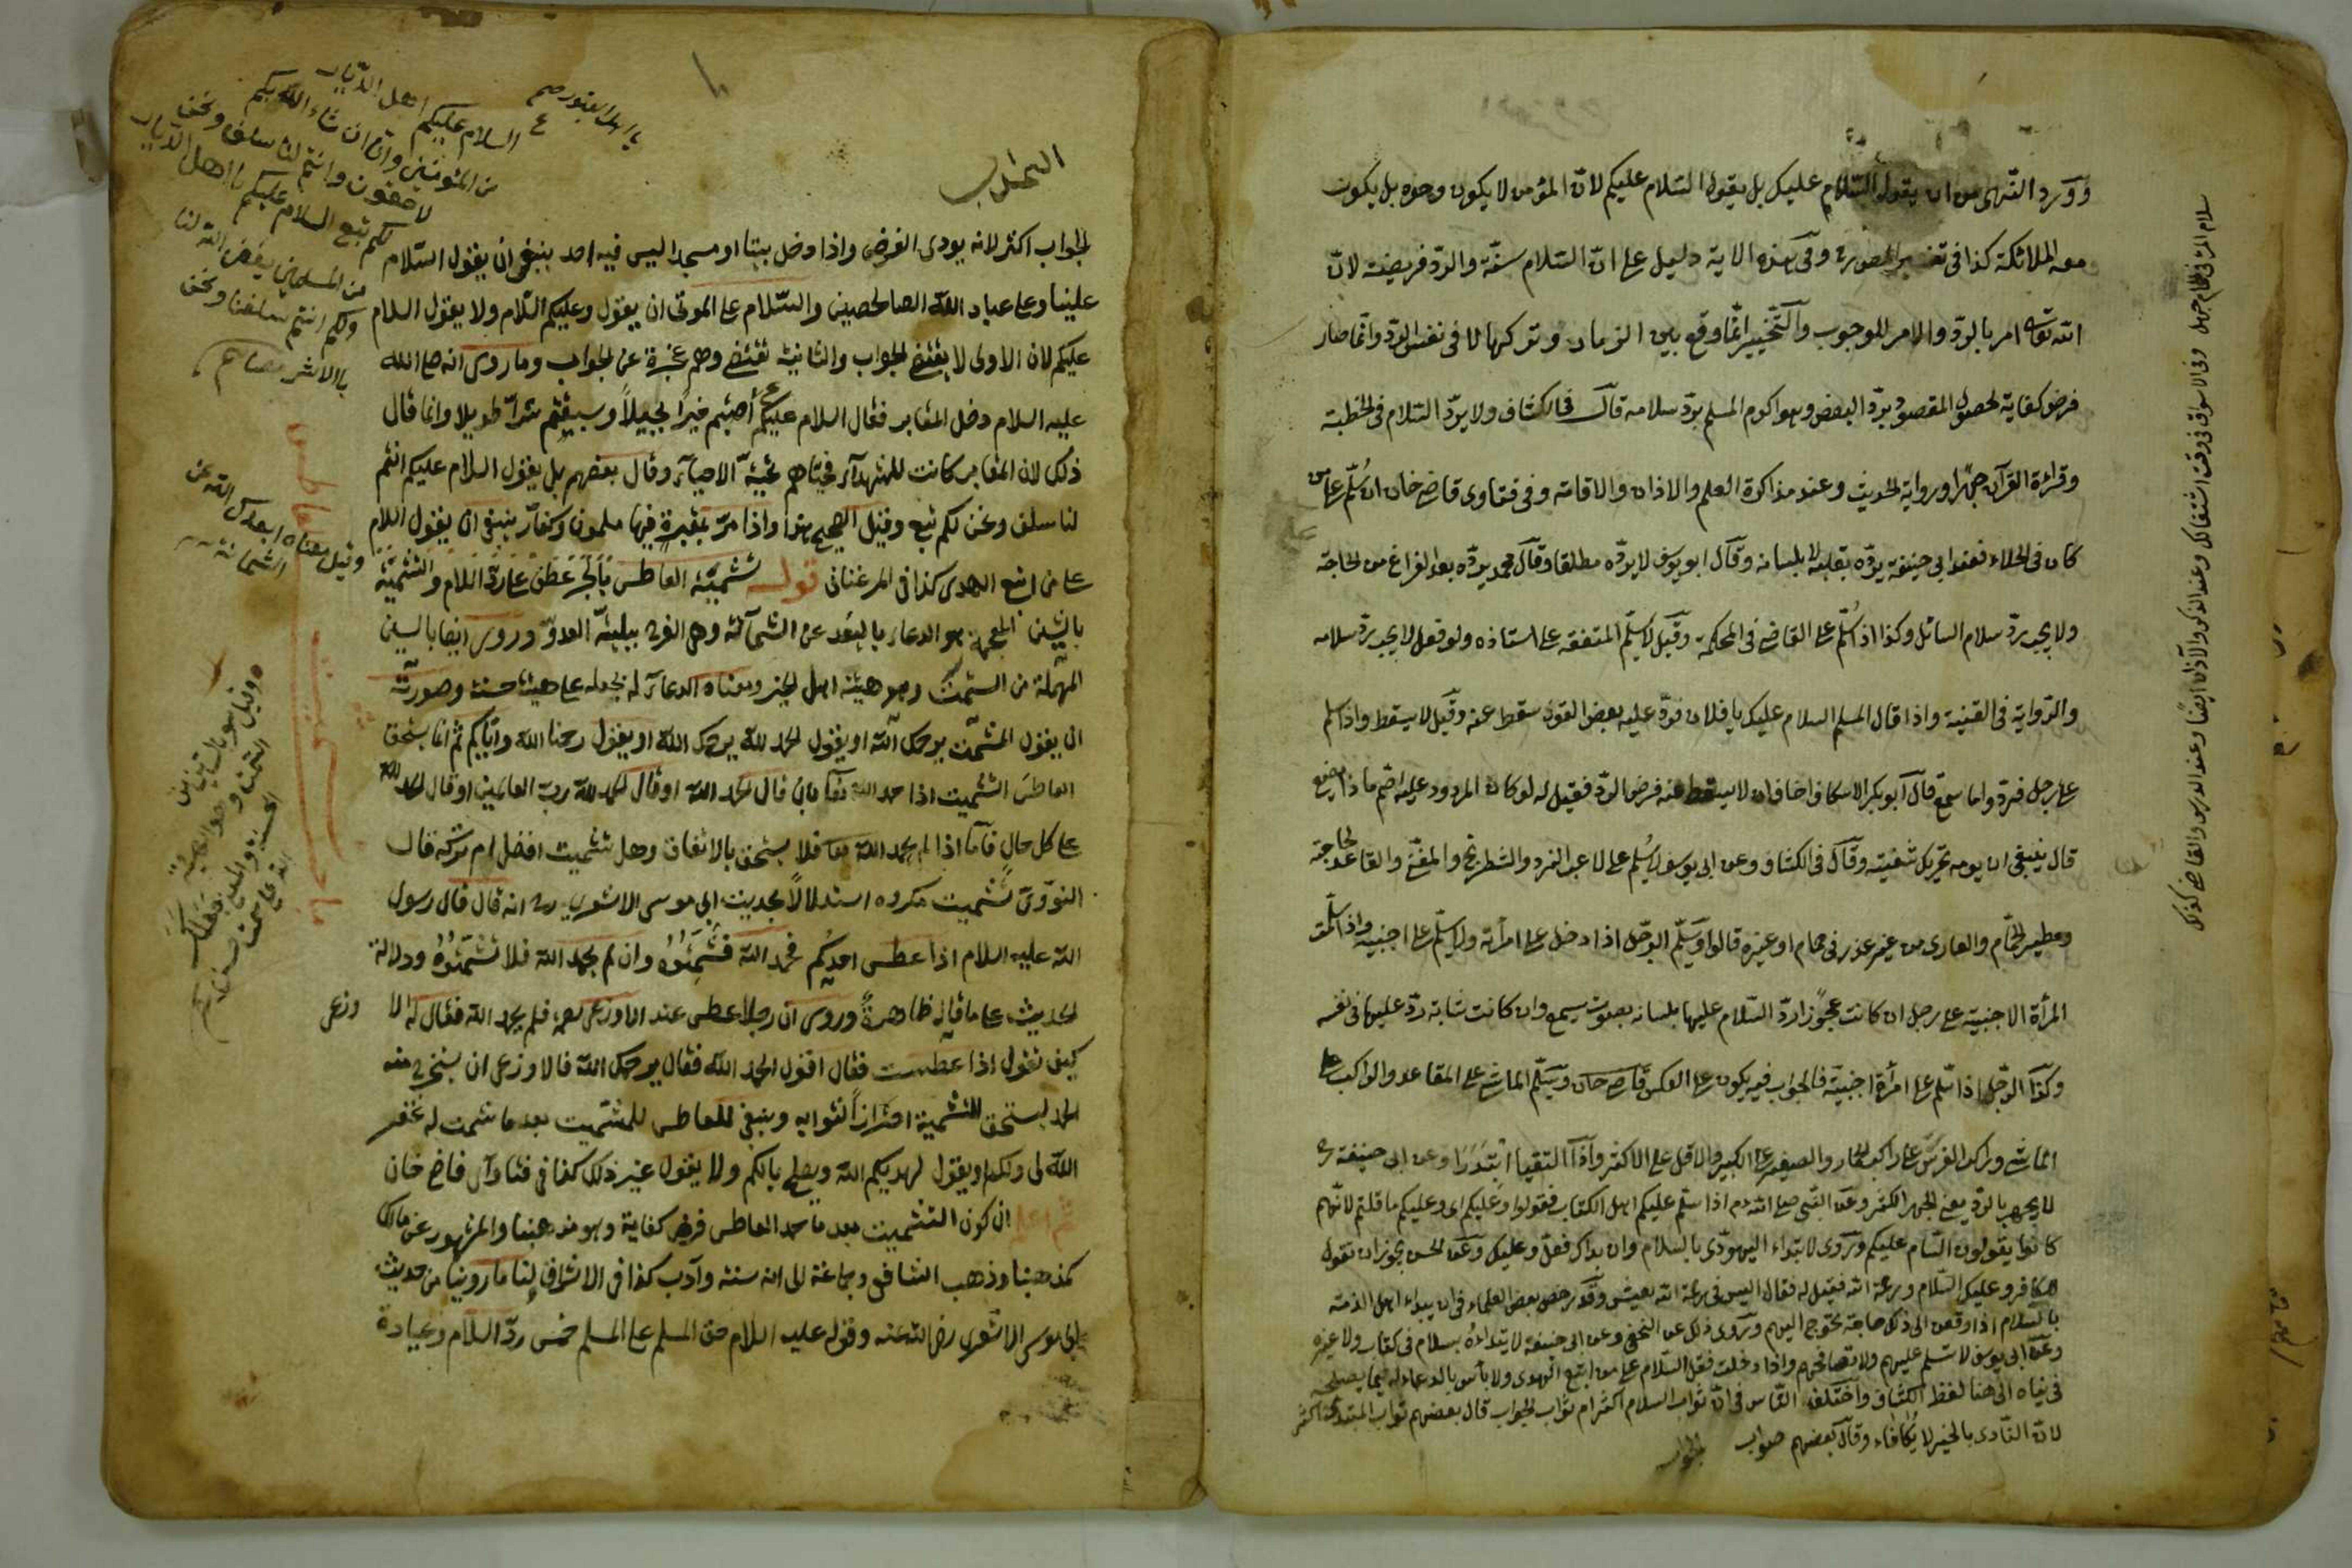 وورد النهى من ان يقول السلام عليك بل يقول السلام عليكم لان المؤمن لا يكون وحده بل يكون
معه الملائكة كذا فى تفسير وفى هذه الاية دليل على ان السلام سنة والرد فريضة لان
الله تعالى امر بالرد والامر للوجوب والتخيير انما وقع بين الزيادة وتركها لا فى نفس الرد وانما صار
فرض كفاية لحصول المقصود برد البعض وهو اكرام المسلم برد سلامه قال فى الكشاف ولا يرد السلام فى الخطبة
وقراءة القرآن جهرا ورواية الحديث وعند مذاكرة العلم والاذان والاقامة وفى فتاوى قاضى خان ان سلم على من
كان فى الخلاء فعند ابى حنيفة يرده بقلبه لا بلسانه وقال ابو يوسف لا يرده مطلقا وقال محمد يرده بعد الفراغ من الحاجة
ولا يجب رد سلام السائل وكذا اذا سلم على القاضى فى المحكمة وقيل لا يسلم المتفقه على استاذه ولو فعل لا يجب رد سلامه
والرواية فى القنية واذا قال المسلم السلام عليك يا فلان فرد عليه بعض القوم سقط عنه وقيل لا يسقط واذا سلم
على رجل فرد واما سمع قال ابو بكر الاسكاف اخاف ان لا يسقط عنه فرض الرد فقيل له لو كان المردود عليه اصم ماذا يصنع
قال ينبغى ان يريه تحريك شفتيه وقال فى الكشاف وعن ابى يوسف لا يسلم على لاعب النرد والشطرنج والمغنى والقاعد لحاجته
ومطير الحمام والعارى من غير عذر فى حمام او غيره قالوا ويسلم الرجل اذا دخل على امرأته ولا يسلم على اجنبية واذا سلمت
المرأة الاجنبية على رجل ان كانت عجوزا رد السلام عليها بلسانه بصوت يسمع وان كانت شابة رد عليها فى نفسه
وكذا الرجل اذا سلم على امرأة اجنبية فالجواب فيه يكون على العكس قاضى خان ويسلم الماشى على القاعد والراكب على
الماشى وراكب الفرس على راكب الحمار والصغير على الكبير والاقل على الاكثر واذا التقيا ابتدرا وعن ابى حنيفة
لا يجهر بالرد يعنى الجهر الكثير وعن النبى صلى الله اذا سلم عليكم اهل الكتاب فقولوا وعليكم اى وعليكم ما قلتم لانهم
كانوا يقولون السام عليكم وروى لا تبتداء اليهودى بالسلام وان بدأك فقل وعليك وعن الحسن يجوز ان تقول
للكافر وعليك السلام ورحمة الله فقيل له فقال اليس فى رحمة الله يعيش وقد رخص بعض العلماء فى ان يبدأ اهل الذمة
بالسلام اذا دعت الى ذلك حاجة تحوج اليهم وروى ذلك عن النخعى وعن ابى حنيفة لا تبتداءه بسلام فى كتاب ولا غيره
وعن ابى يوسف لا تسلم عليهم ولا تصافحهم واذا دخلت فقل السلام على من اتبع الهدى ولا بأس بالدعاء له بما يصلحه
فى دنياه الى هنا لفظ الكشاف واختلف الناس فى ان ثواب السلام اكثر ام ثواب الجواب قال بعضهم ثواب المبتدى اكثر
لان البادى بالخير لا يكافاء وقال بعضهم ثواب
الجواب
وفى الاسواق فى وقت اشتغالك وعند الذكر والاذان ايضا وعند الدرس والقاضى كذلك
الجواب اكثر لانه يودى الفرض واذا دخل بيتا او مسجدا ليس فيه احد ينبغى ان يقول السلام
علينا وعلى عباد الله الصالحين والسلام على الموتى ان يقول وعليكم السلام ولا يقول السلام
عليكم لان الاولى لا يقتضى الجواب والثانية تقتضى وهم عجزة عن الجواب وما روى انه صلى الله
عليه السلام دخل المقابر فقال السلام عليكم أصبتم خيرا بجيلا وسبقتم شرا طويلا وانما قال
ذلك لان المقابر كانت للشهداء فحياهم تحية الاحياء وقال بعضهم بل يقول السلام عليكم انتم
لنا سلف ونحن لكم تبع وقيل الصحيح هذا واذا مر بمقبرة فيها مسلمون وكفار ينبغى ان يقول السلام
على من اتبع الهدى كذا فى المرغنانى قوله تشميت العاطس بالجر عطف على رد السلام والتشميت
بالشين المعجمة هو الدعاء بالبعد عن الشماتة وهى الفرح ببلية العدو وروى ايضا بالسين
المهملة من السمت وهو هيئة اهل الخير ومعناه الدعاء له بجعله على هيئة حسنة وصورته
ان يقول المشمت يرحمك الله او يقول الحمد لله يرحمك الله او يقول رحمنا الله واياكم ثم انما يستحق
العاطس التشميت اذا حمد الله تعالى بان قال الحمد لله او قال الحمد لله رب العالمين او قال الحمد لله
على كل حال فاما اذا لم يحمد الله تعالى فلا يستحق بالاتفاق وهل تشميت افضل ام تركه قال
النووى تشميت مكروه استدلالا بحديث ابى موسى الاشعرى انه قال قال رسول
الله عليه السلام اذا عطس احدكم فحمد الله فشمتوه وان لم يحمد الله فلا تشمتوه ودلالة
الحديث على ما قاله ظاهرة وروى ان رجلا عطس عند الاوزعى فلم يحمد الله فقال له الا
وزعى
كيف تقول اذا عطست فقال اقول الحمد لله فقال يرحمك الله فالاوزعى ان يستخرج منه
الحمد ليستحق التشميت احترازا لثوابه وينبغى للعاطس للمشمت بعد ما شمت له غفر
الله لى ولكم او يقول يهديكم الله ويصلح بالكم ولا يقول غير ذلك كذا فى فتاوى قاضى خان
ثم اعلم ان كون التشميت بعد ما حمد العاطس فرض كفاية وهو مذهبنا والمشهور عن مالك
كمذهبنا وذهب الشافعى وجماعة الى انه سنة وآدب كذا فى الاشراف لنا ما روينا من حديث
ابى موسى الاشعرى رضى الله عنه وقوله عليه السلام حق المسلم على المسلم خمس رد السلام وعيادة
يا اهل القبور صح
السلام عليكم اهل الديار
من المؤمنين وانا ان شاء الله بكم
لاحقون وانتم لنا سلف ونحن
لكم تبع السلام عليكم يا اهل الديار
من المسلمين يغفر الله لنا
ولكم انتم سلفنا ونحن
بالاثر
وقيل معناه ابعدك الله عن
الشماتة